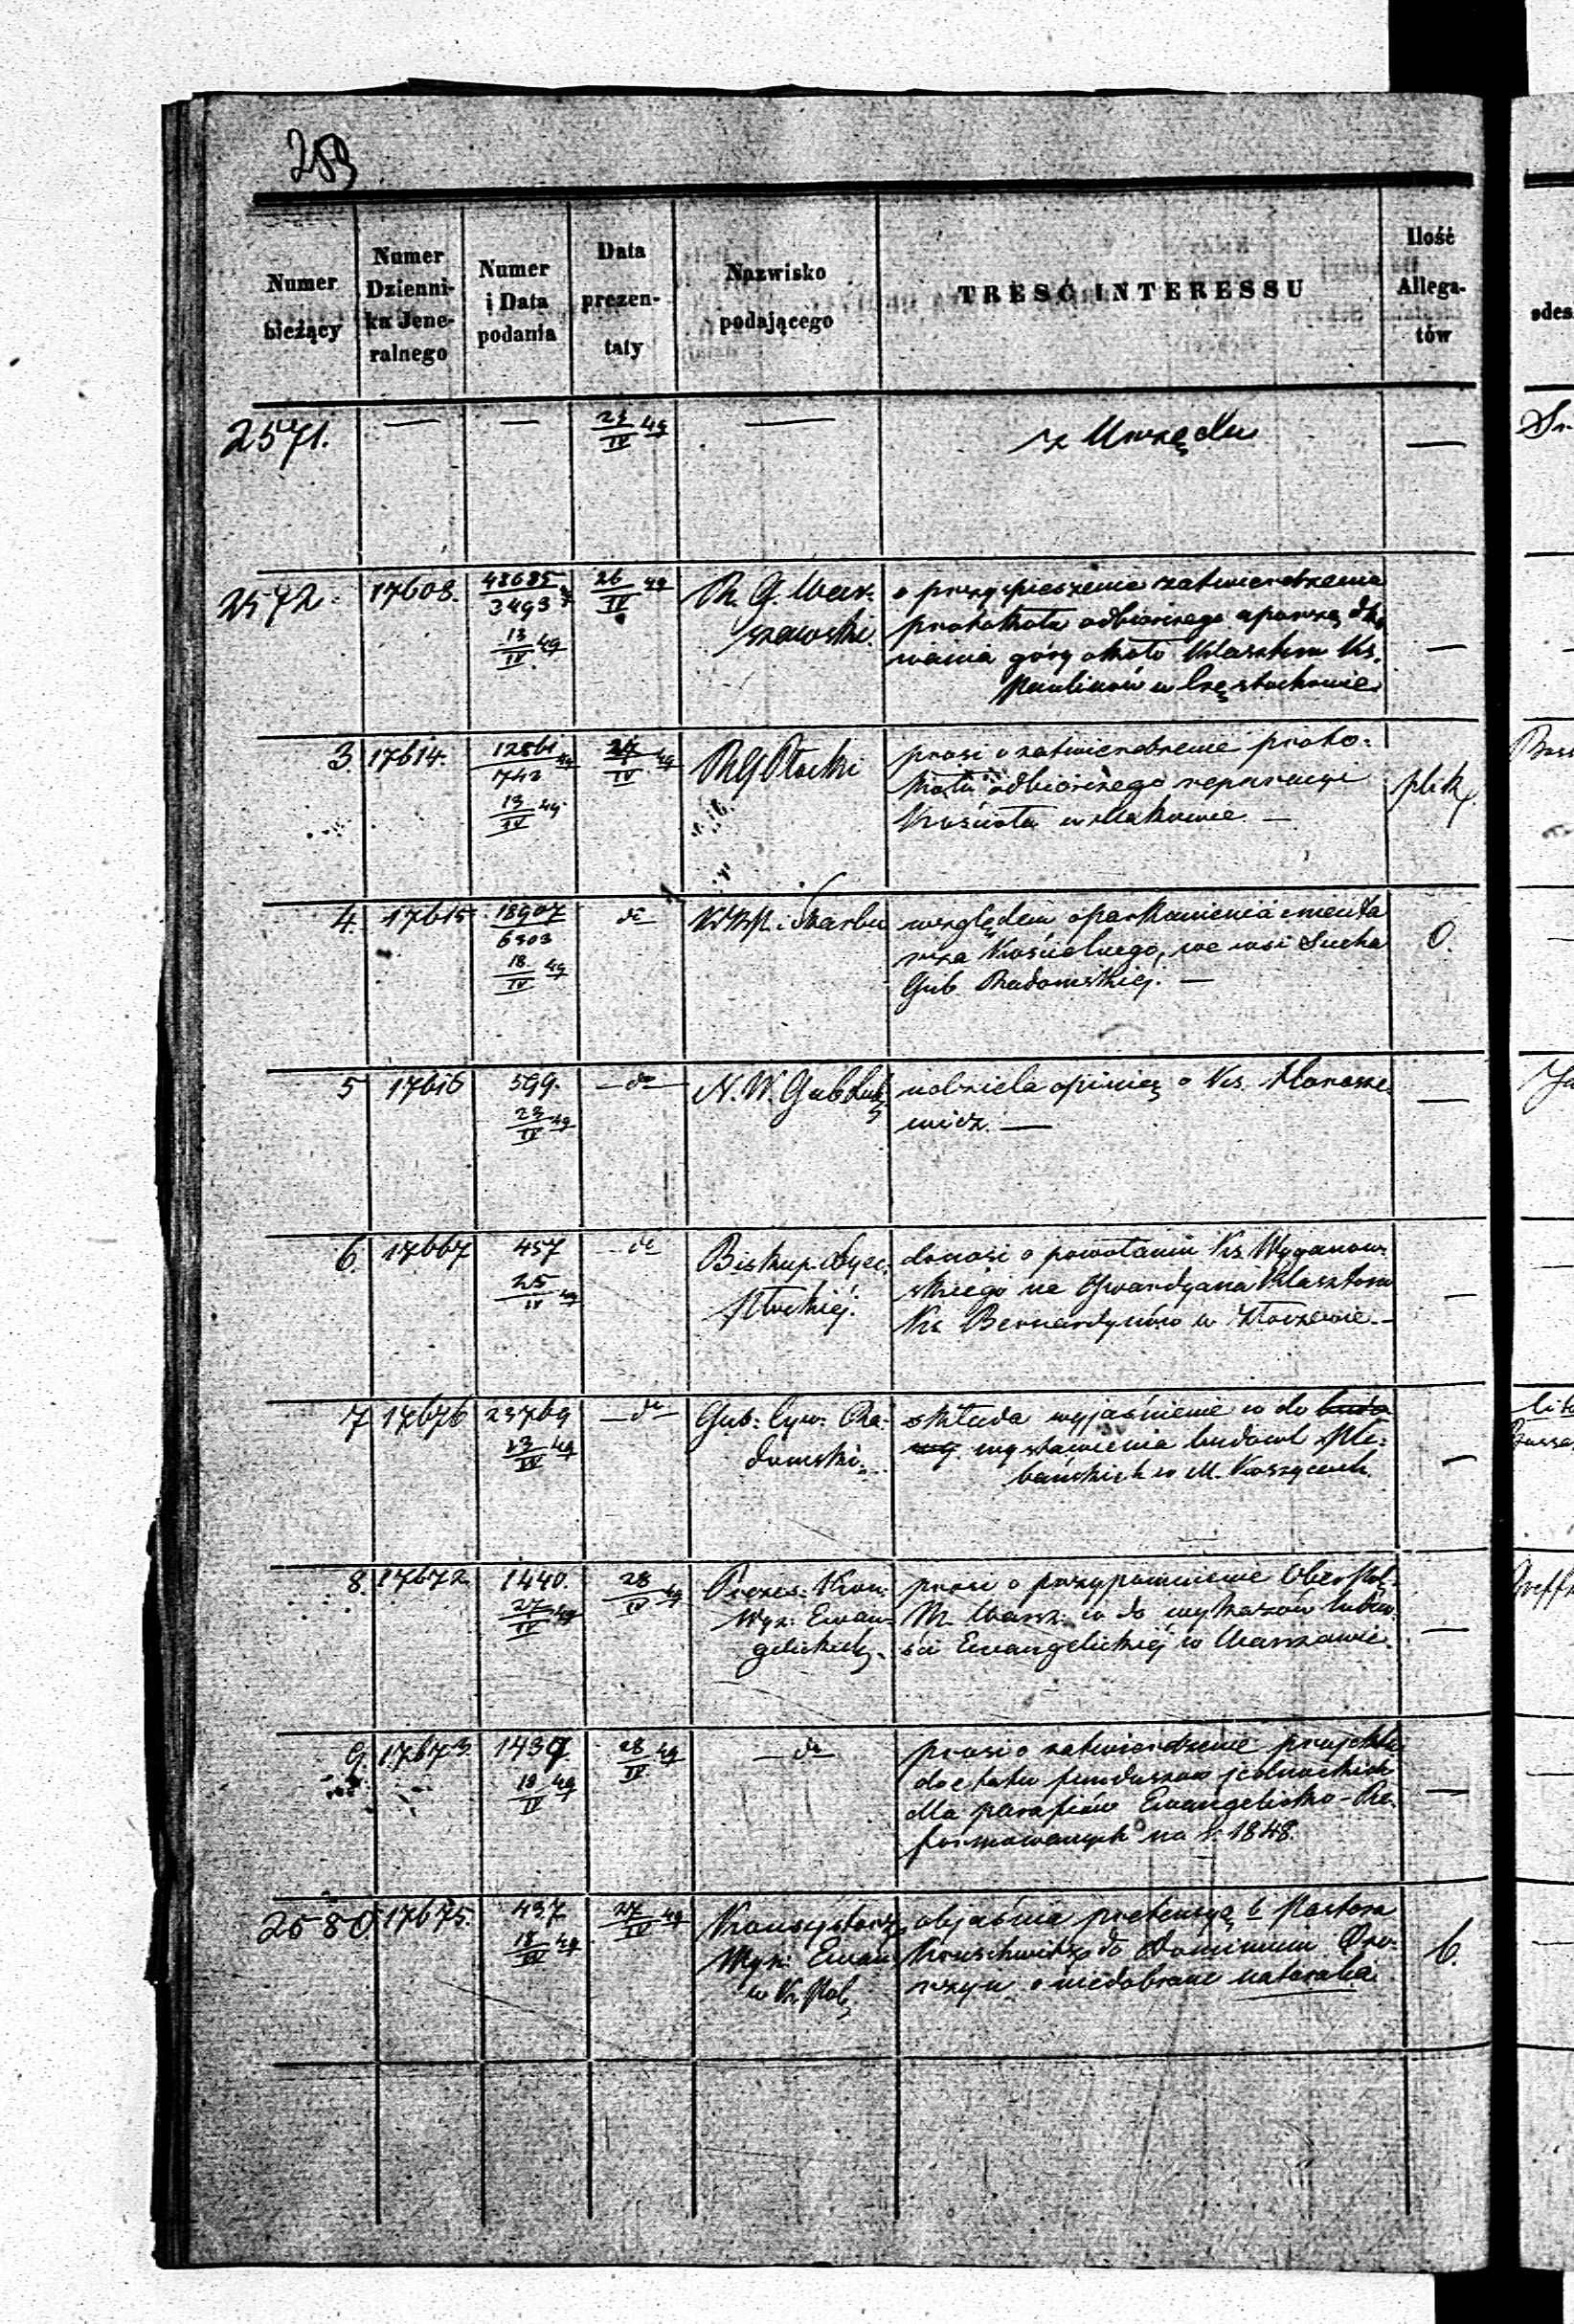 259
Numer bieżący
Numer Dzienni-ka Jene-ralnego
Numer i Data podania
Data prezen-taty
Nazwisko podającego
TREŚĆ INTERESSU
Ilość Allega-tów
odes
2571. — — 23/IV 49 — z Urzędu —
2572. 17608. 48685/3493 13/IV 49 26/IV 49
R. G. War-
szawski.
o przyspieszenie zatwierdzenia
protokołu odbiorczego uporządko
wania góry około Klasztoru Ks.
Paulinów w Częstochowie
—
3. 17614. 12861/742 13/IV 49 27/IV 49
RG Płocki
prosi o zatwierdzenie proto-
kołu odbiorczego reparacyi
Kościoła w Makowie. —
plik
4. 17615 18907/6303 18/IV 49 do
KRP. i Skarbu
względem oparkanienia cmenta
rza Kościelnego, we wsi Sucha
Gub. Radomskiej. —
0.
5 17616 599. 23/IV 49 — do —
N. W. Gub Lub
udziela opinię o Ks.
wicz. —
—
6. 17667 457 25/IV 49 — do
Biskup Dyec.
Płockiej.
donosi o powołaniu Ks. Wyganow-
skiego na Gwardyana Klasztoru
Ks. Bernardynów w Złoczewie. —
—
7 17676 23769 23/IV 49 — do
Gub: Cyw: Ra-
domski.
składa wyjaśnienie co do budo
wy wystawienia budowl Ple-
bańskich w M. Koszycach.
—
8. 17672 1440. 27/IV 49 28/IV 49
Prezes: Kon:
Wyz: Ewan-
gelickich.
prosi o przypomnienie OberPol-
M. Warsz: co do wykazów ludno-
ści Ewangelickiej w Warszawie.
—
9 17673 1439. 19/IV 49 28/IV 49 — do
prosi o zatwierdzenie projektu
do etatu funduszów
dla parafiów Ewangelicko-Re-
formowanych na r. 1848.
—
2580 17675. 437 18/IV 49 27/IV 49
Konsystorz
Wyz: Ewan
w Kr. Pol.
objaśnia pretensyą b Pastora
do Dominium
o niedobrane naturalia
6.